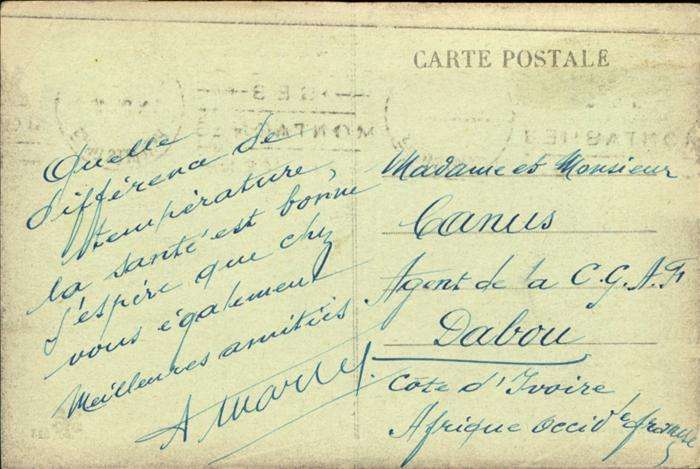 CARTE POSTALE
Quelle
différence de
température,
la santé est bonne
J'espère que chez
vous également
Meilleures amitiés
Madame et Monsieur
Canus
Agent de la C.G.A.F
Dabou
Côte d'Ivoire
Afrique Occid^le française